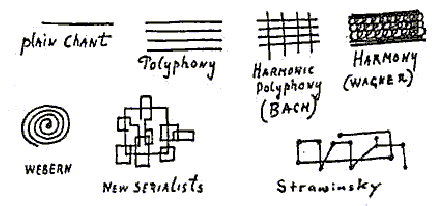 plain chant
Polyphony
HARMONIC
Polyphony
(BACH)
HARMONY
(WAGNER)
WEBERN
NEW SERIALISTS
Strawinsky